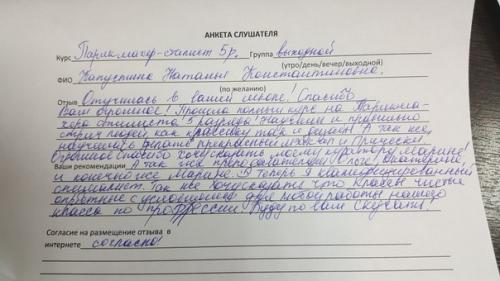 АНКЕТА СЛУШАТЕЛЯ
Курс Парикмахер-стилист 5р. Группа выходной
(утро/день/вечер/выходной)
ФИО Капустина Наталья Константиновна.
(по желанию)
Отзыв Отучилась в вашей школе! Спасибо
Вам огромное! Прошла полный курс на Парикма-
хера стилиста 5 разряда! Научили и правильно
стричь людей как и красиво! А так же,
научилась делать прекрасный макияж и Прически!
Огромное спасибо хочу сказать моему куратору Марине!
Ваши рекомендации А так же преподавателям Ольге, Екатерине,
и конечно же Марине! Я теперь квалифицированный
специалист. Так же хочу сказать что классы чистые
опрятные с условиями для любой работы нашего
класса по профессии. Буду по вам скучать!
Согласие на размещение отзыва в
интернете согласна!